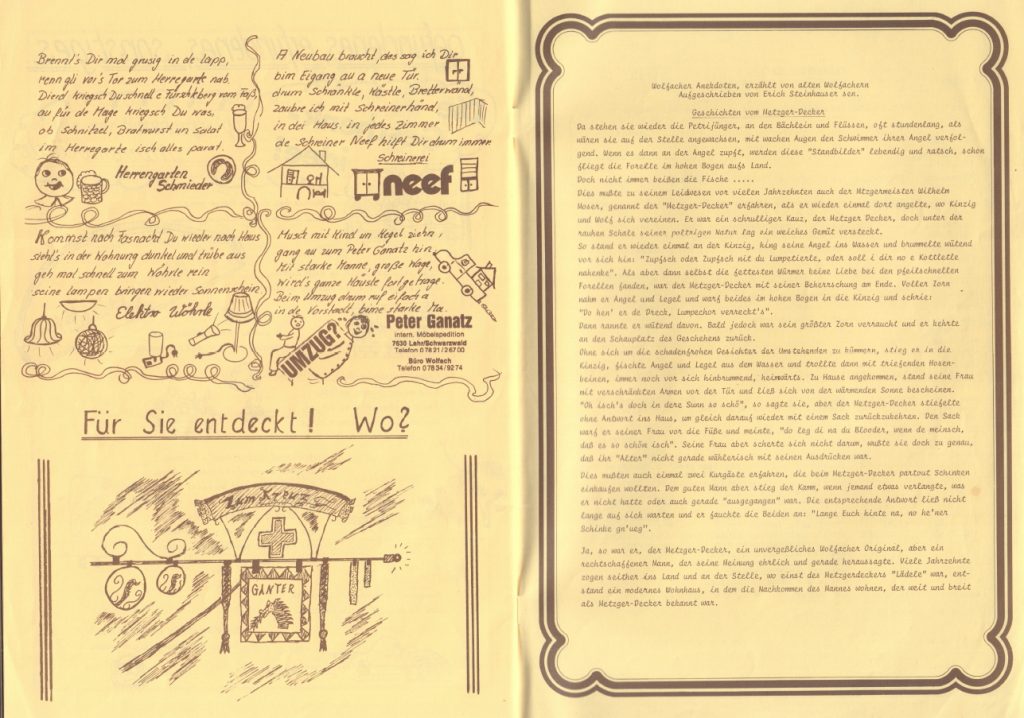 Brennt's Dir mal grusig in de lapp,
renn gli vor's Tor zum Herregarte nab.
Dierd kriegsch Du schnell e Fürschtberg vom Faß,
au für de Mage kriegsch Du was,
ob Schnitzel, Bratwurst un Salat
im Herregarte isch alles parat.
Herrengarten
Schmieder
A Neubau braucht, des sag ich Dir
bim Eigang au a neue Tür.
drum Schränkle, Kästle, Bretterwänd,
zaubre ich mit Schreinerhänd,
in dei Haus. in jedes Zimmer
de Schreiner Neef hilft Dir drum immer
Schreinerei
neef
Kommst nach Fasnacht Du wieder nach Haus
sieht's in der Wohnung dunkel und trübe aus
geh mal schnell zum Wöhrle rein
seine Lampen bringen wieder Sonnenschein
Elektro Wöhrle
Musch mit Kind un Kegel ziehn,
gang au zum Peter Ganatz hin,
Mit starke Manne, große Wage,
wird's ganze Häusle fortgetrage.
Beim Umzug drum ruf eifach a
in de Vorstadt, bime starke Ma.
UMZUG?
Peter Ganatz
intern. Möbelspedition
7630 Lahr/Schwarzwald
Telefon 0 78 21 / 2 67 00
Büro Wolfach
Telefon 0 78 34 / 92 74
Für Sie entdeckt! Wo?
Zum Kreuz
F F
GANTER
Wolfacher Anekdoten, erzählt von alten Wolfachern
Aufgeschrieben von Erich Steinhauser sen.
Geschichten vom Metzger-Decker
Da stehen sie wieder die Petrijünger, an den Bächlein und Flüssen, oft stundenlang, als
wären sie auf der Stelle angewachsen, mit wachen Augen den Schwimmer ihrer Angel verfol-
gend. Wenn es dann an der Angel zupft, werden diese "Standbilder" lebendig und ratsch, schon
fliegt die Forelle im hohen Bogen aufs Land.
Doch nicht immer beißen die Fische .....
Dies mußte zu seinem Leidwesen vor vielen Jahrzehnten auch der Mtzgermeister Wilhelm
Moser, genannt der "Metzger-Decker" erfahren, als er wieder einmal dort angelte, wo Kinzig
und Wolf sich vereinen. Er war ein schrulliger Kauz, der Metzger Decker, doch unter der
rauhen Schale seiner poltrigen Natur lag ein weiches Gemüt versteckt.
So stand er wieder einmal an der Kinzig, hing seine Angel ins Wasser und brummelte wütend
vor sich hin: "Zupfsch oder Zupfsch nit du Lumpetierle, oder soll i dir no e Kottlette
nahenke". Als aber dann selbst die fettesten Würmer keine Liebe bei den pfeilschnellen
Forellen fanden, war der Metzger-Decker mit seiner Beherrschung am Ende. Voller Zorn
nahm er Angel und Legel und warf beides im hohen Bogen in die Kinzig und schrie:
"Do hen' er de Dreck, Lumpechor verreckt's".
Dann rannte er wütend davon. Bald jedoch war sein größter Zorn verraucht und er kehrte
an den Schauplatz des Geschehens zurück.
Ohne sich um die schadenfrohen Gesichter der Umstehenden zu kümmern, stieg er in die
Kinzig, fischte Angel und Legel aus dem Wasser und trollte dann mit triefenden Hosen-
beinen, immer noch vor sich hinbrummend, heimwärts. Zu Hause angekommen, stand seine Frau
mit verschränkten Armen vor der Tür und ließ sich von der wärmenden Sonne bescheinen.
"Oh isch's doch in dere Sunn so schö", so sagte sie, aber der Metzger-Decker stiefelte
ohne Antwort ins Haus, um gleich darauf wieder mit einem Sack zurückzukehren. Den Sack
warf er seiner Frau vor die Füße und meinte, "do leg di na du Blooder, wenn de meinsch,
daß es so schön isch". Seine Frau aber scherte sich nicht darum, wußte sie doch zu genau,
daß ihr "Alter" nicht gerade wählerisch mit seinen Ausdrücken war.
Dies mußten auch einmal zwei Kurgäste erfahren, die beim Metzger-Decker partout Schinken
einkaufen wollten. Dem guten Mann aber stieg der Kamm, wenn jemand etwas verlangte, was
er nicht hatte oder auch gerade "ausgegangen" war. Die entsprechende Antwort ließ nicht
lange auf sich warten und er fauchte die Beiden an: "Lange Euch hinte na, no he'ner
Schinke gn'ueg".
Ja, so war er, der Metzger-Decker, ein unvergeßliches Wolfacher Original, aber ein
rechtschaffener Mann, der seine Meinung ehrlich und gerade heraussagte. Viele Jahrzehnte
zogen seither ins Land und an der Stelle, wo einst des Metzgerdeckers "Lädele" war, ent-
stand ein modernes Wohnhaus, in dem die Nachkommen des Mannes wohnen, der weit und breit
als Metzger-Decker bekannt war.